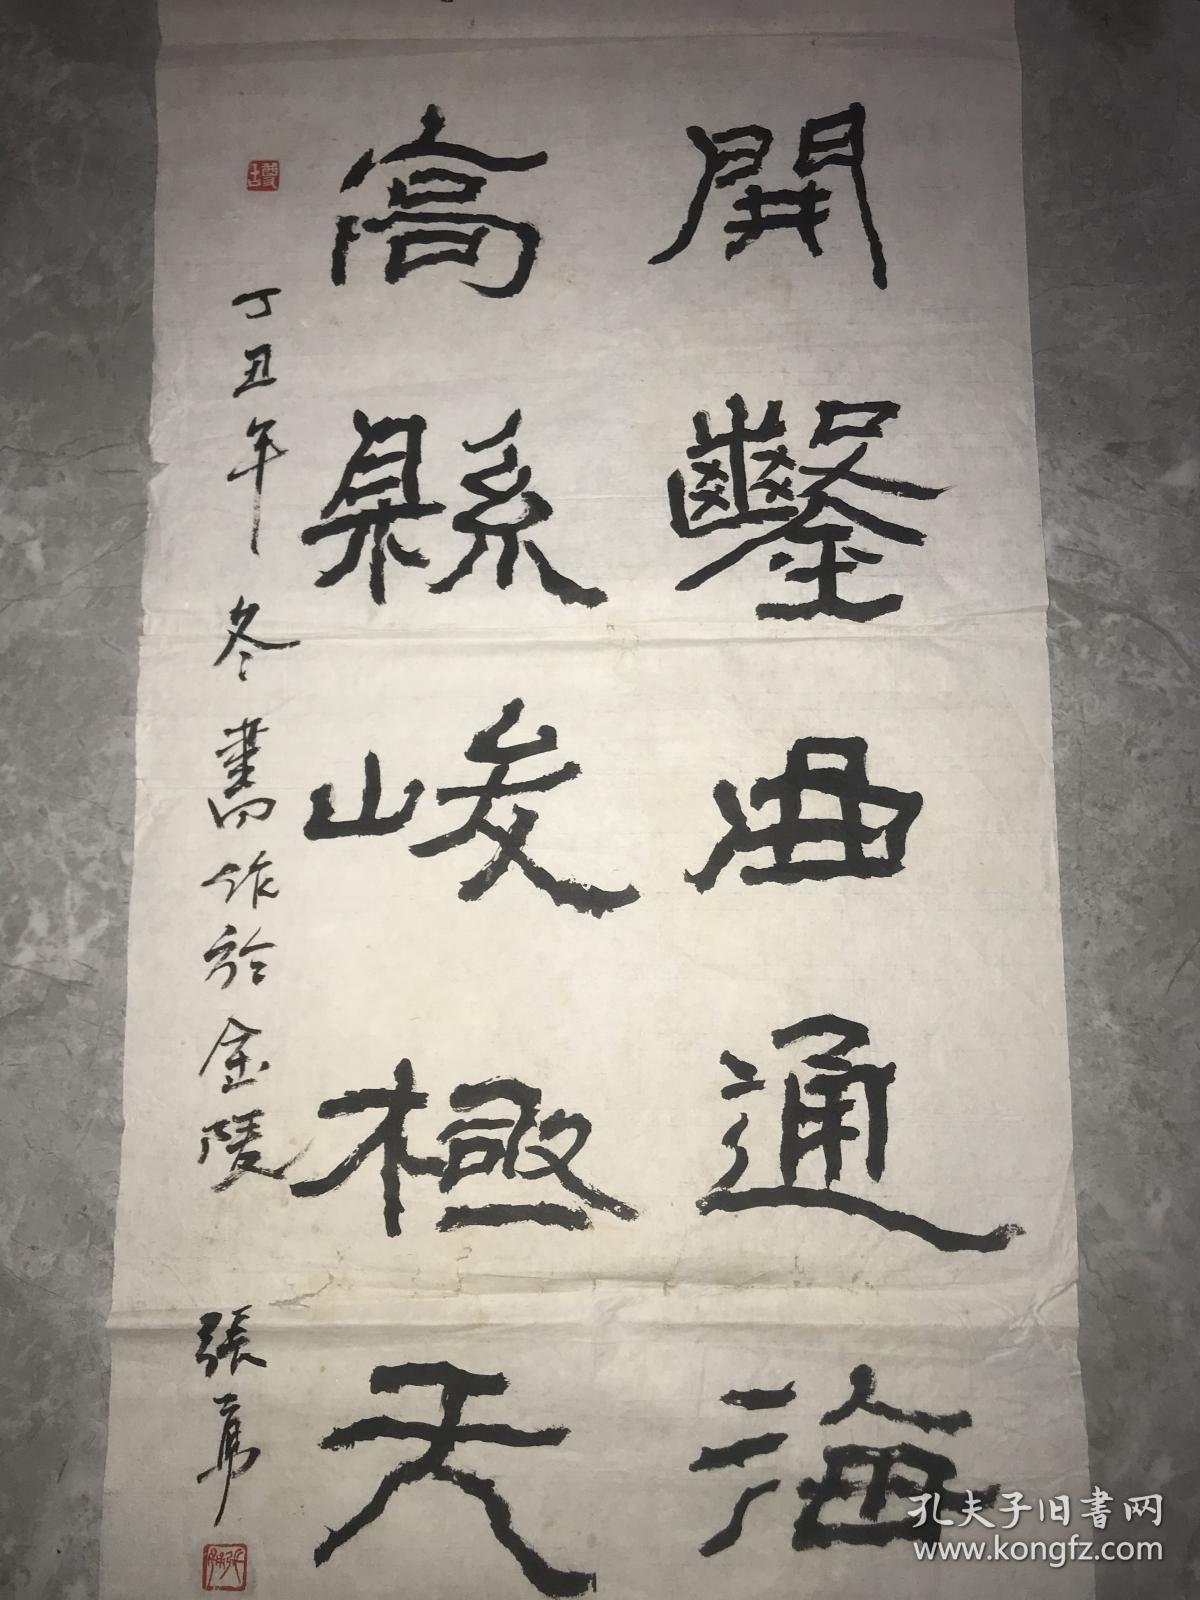 開鑿曲通海
高縣峻極天
丁丑年冬書作於金陵
張
孔夫子旧书网
www.kongfz.com